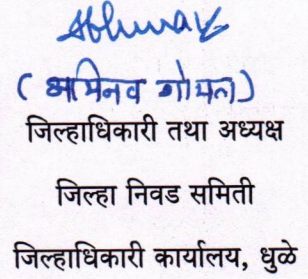 Abhinav
( अभिनव गोयल )
जिल्हाधिकारी तथा अध्यक्ष
जिल्हा निवड समिती
जिल्हाधिकारी कार्यालय, धुळे